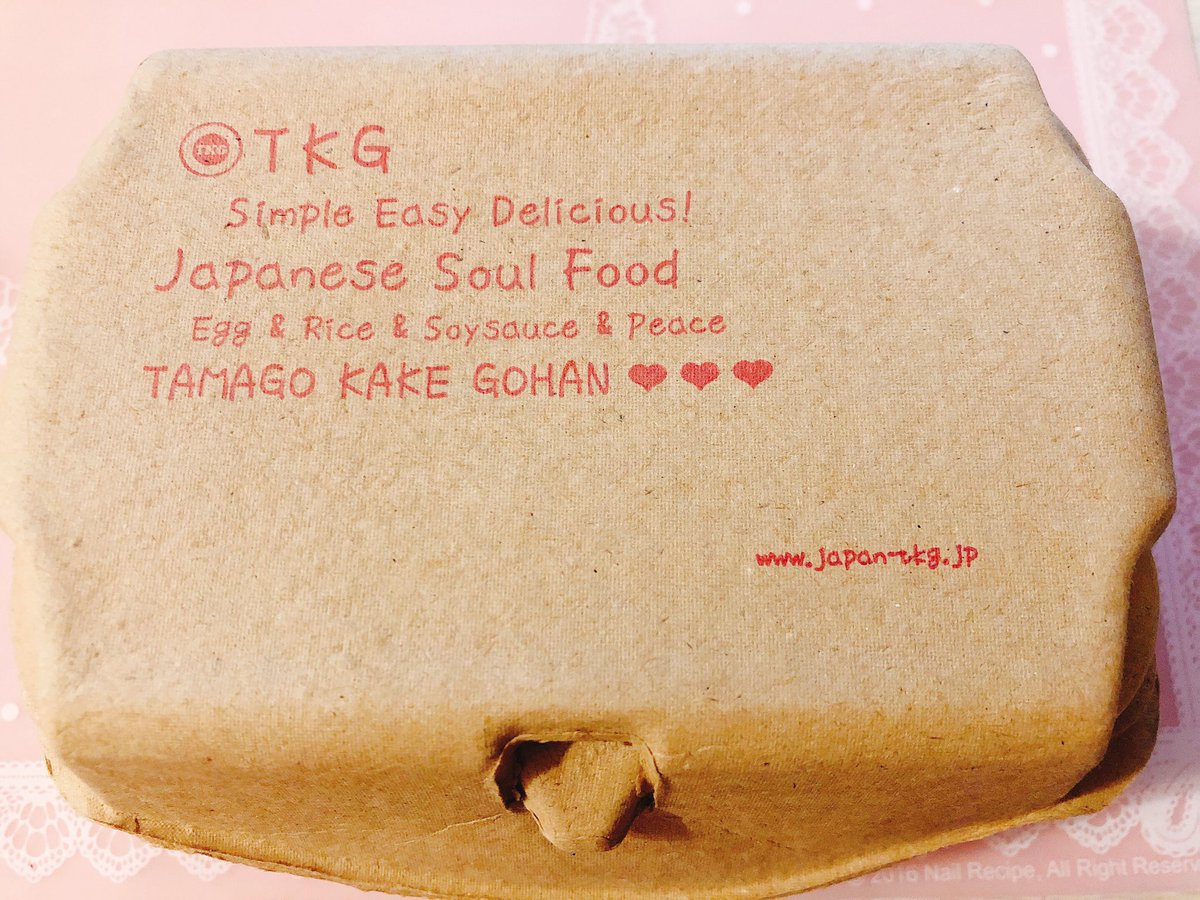 TKG TKG
Simple Easy Delicious!
Japanese Soul Food
Egg & Rice & Soysauce & Peace
TAMAGO KAKE GOHAN ♥♥♥
www.japan-tkg.jp
© 2016 Nail Recipe, All Right Reser